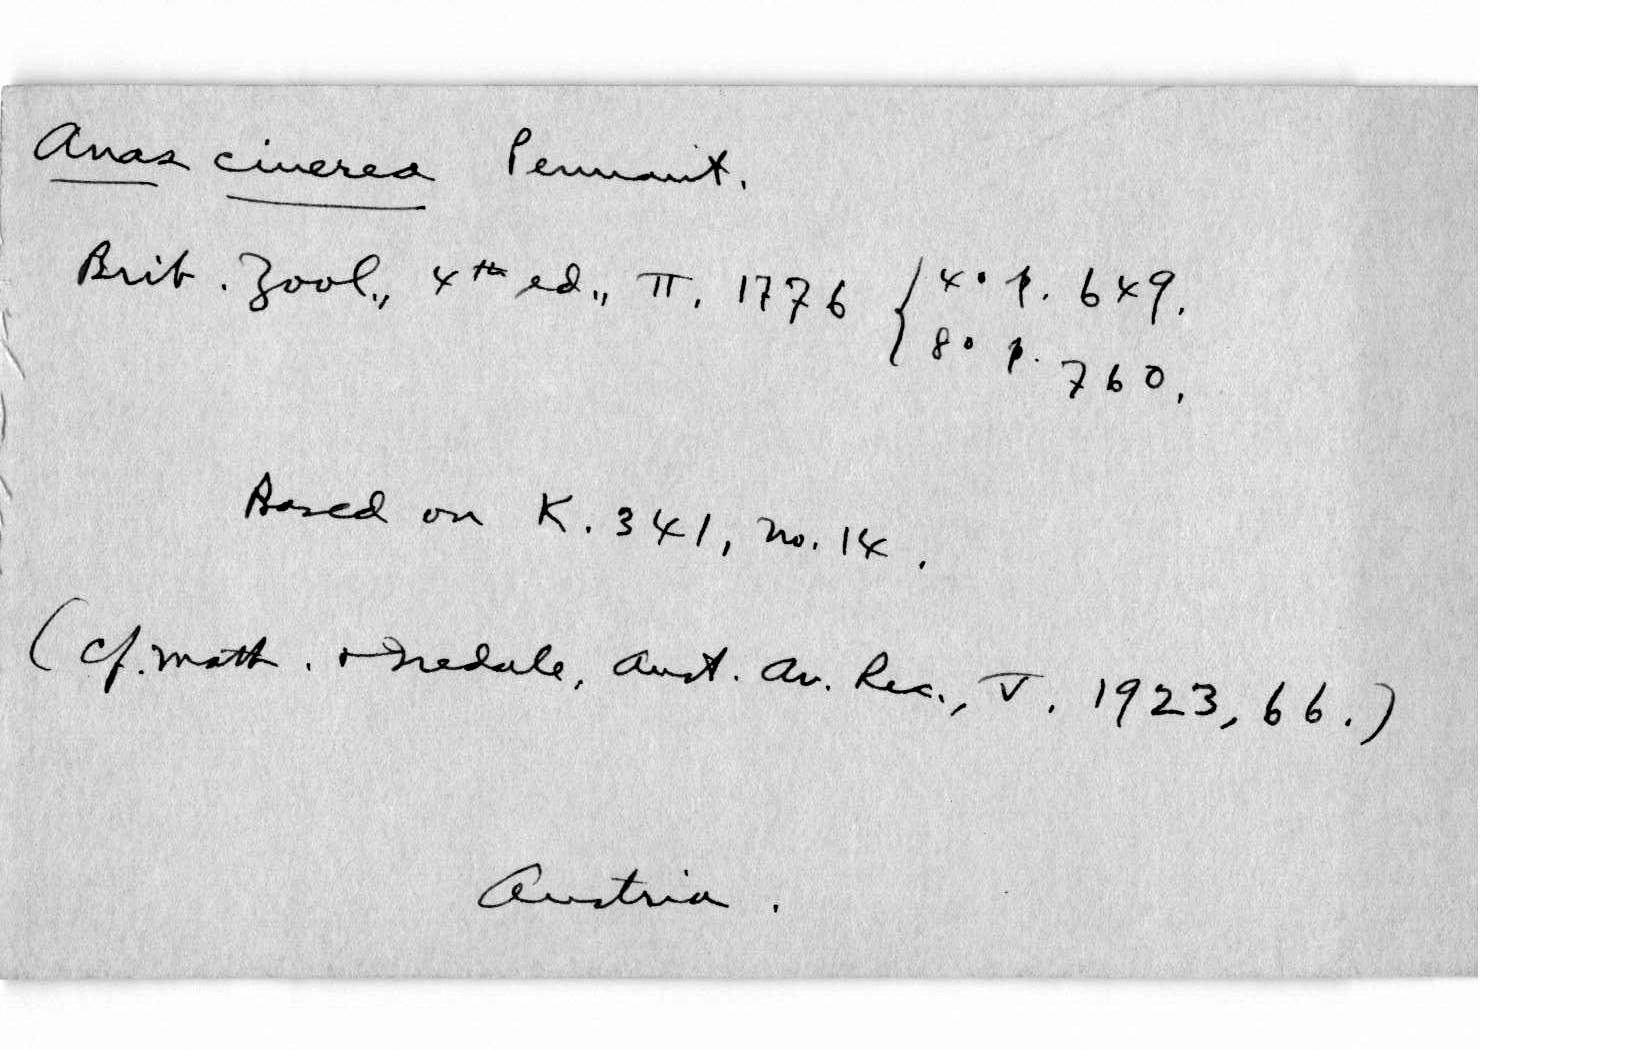 Anas cinerea Pennant.
Brit. Zool., 4th ed., II. 1776 { 4° p. 649.
8° p. 760.
Based on K. 341, no. 14.
(cf. Math. + Iredale, Aust. Av. Rec., V. 1923, 66.)
Austria.